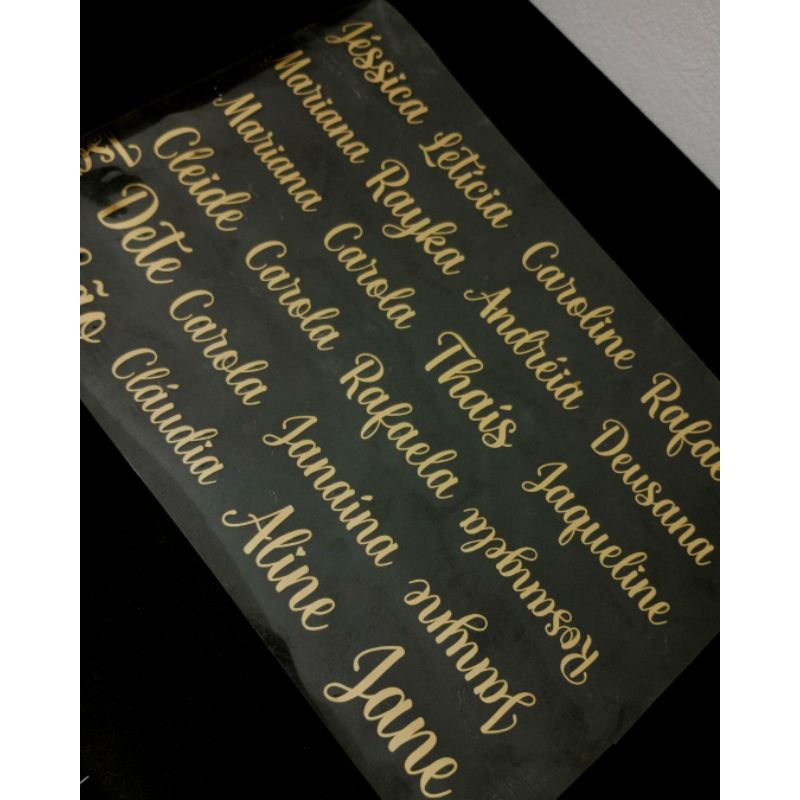 Jéssica Letícia Caroline Rafae
Mariana Rayka Andréia Deusana
Mariana Carola Thaís Jaqueline
Cleide Carola Rafaela Rosangela
Dete Carola Janaína Jannyne
ão Cláudia Aline Jane